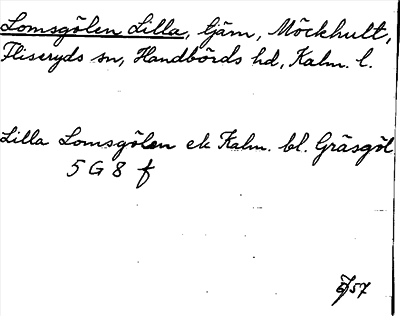 Lomsgölen Lilla, tjärn, Möckhult,
Fliseryds sn, Handbörds hd, Kalm. l.
Lilla Lomsgölen ek Kalm. bl. Gräsgöl
5 G 8 f
57